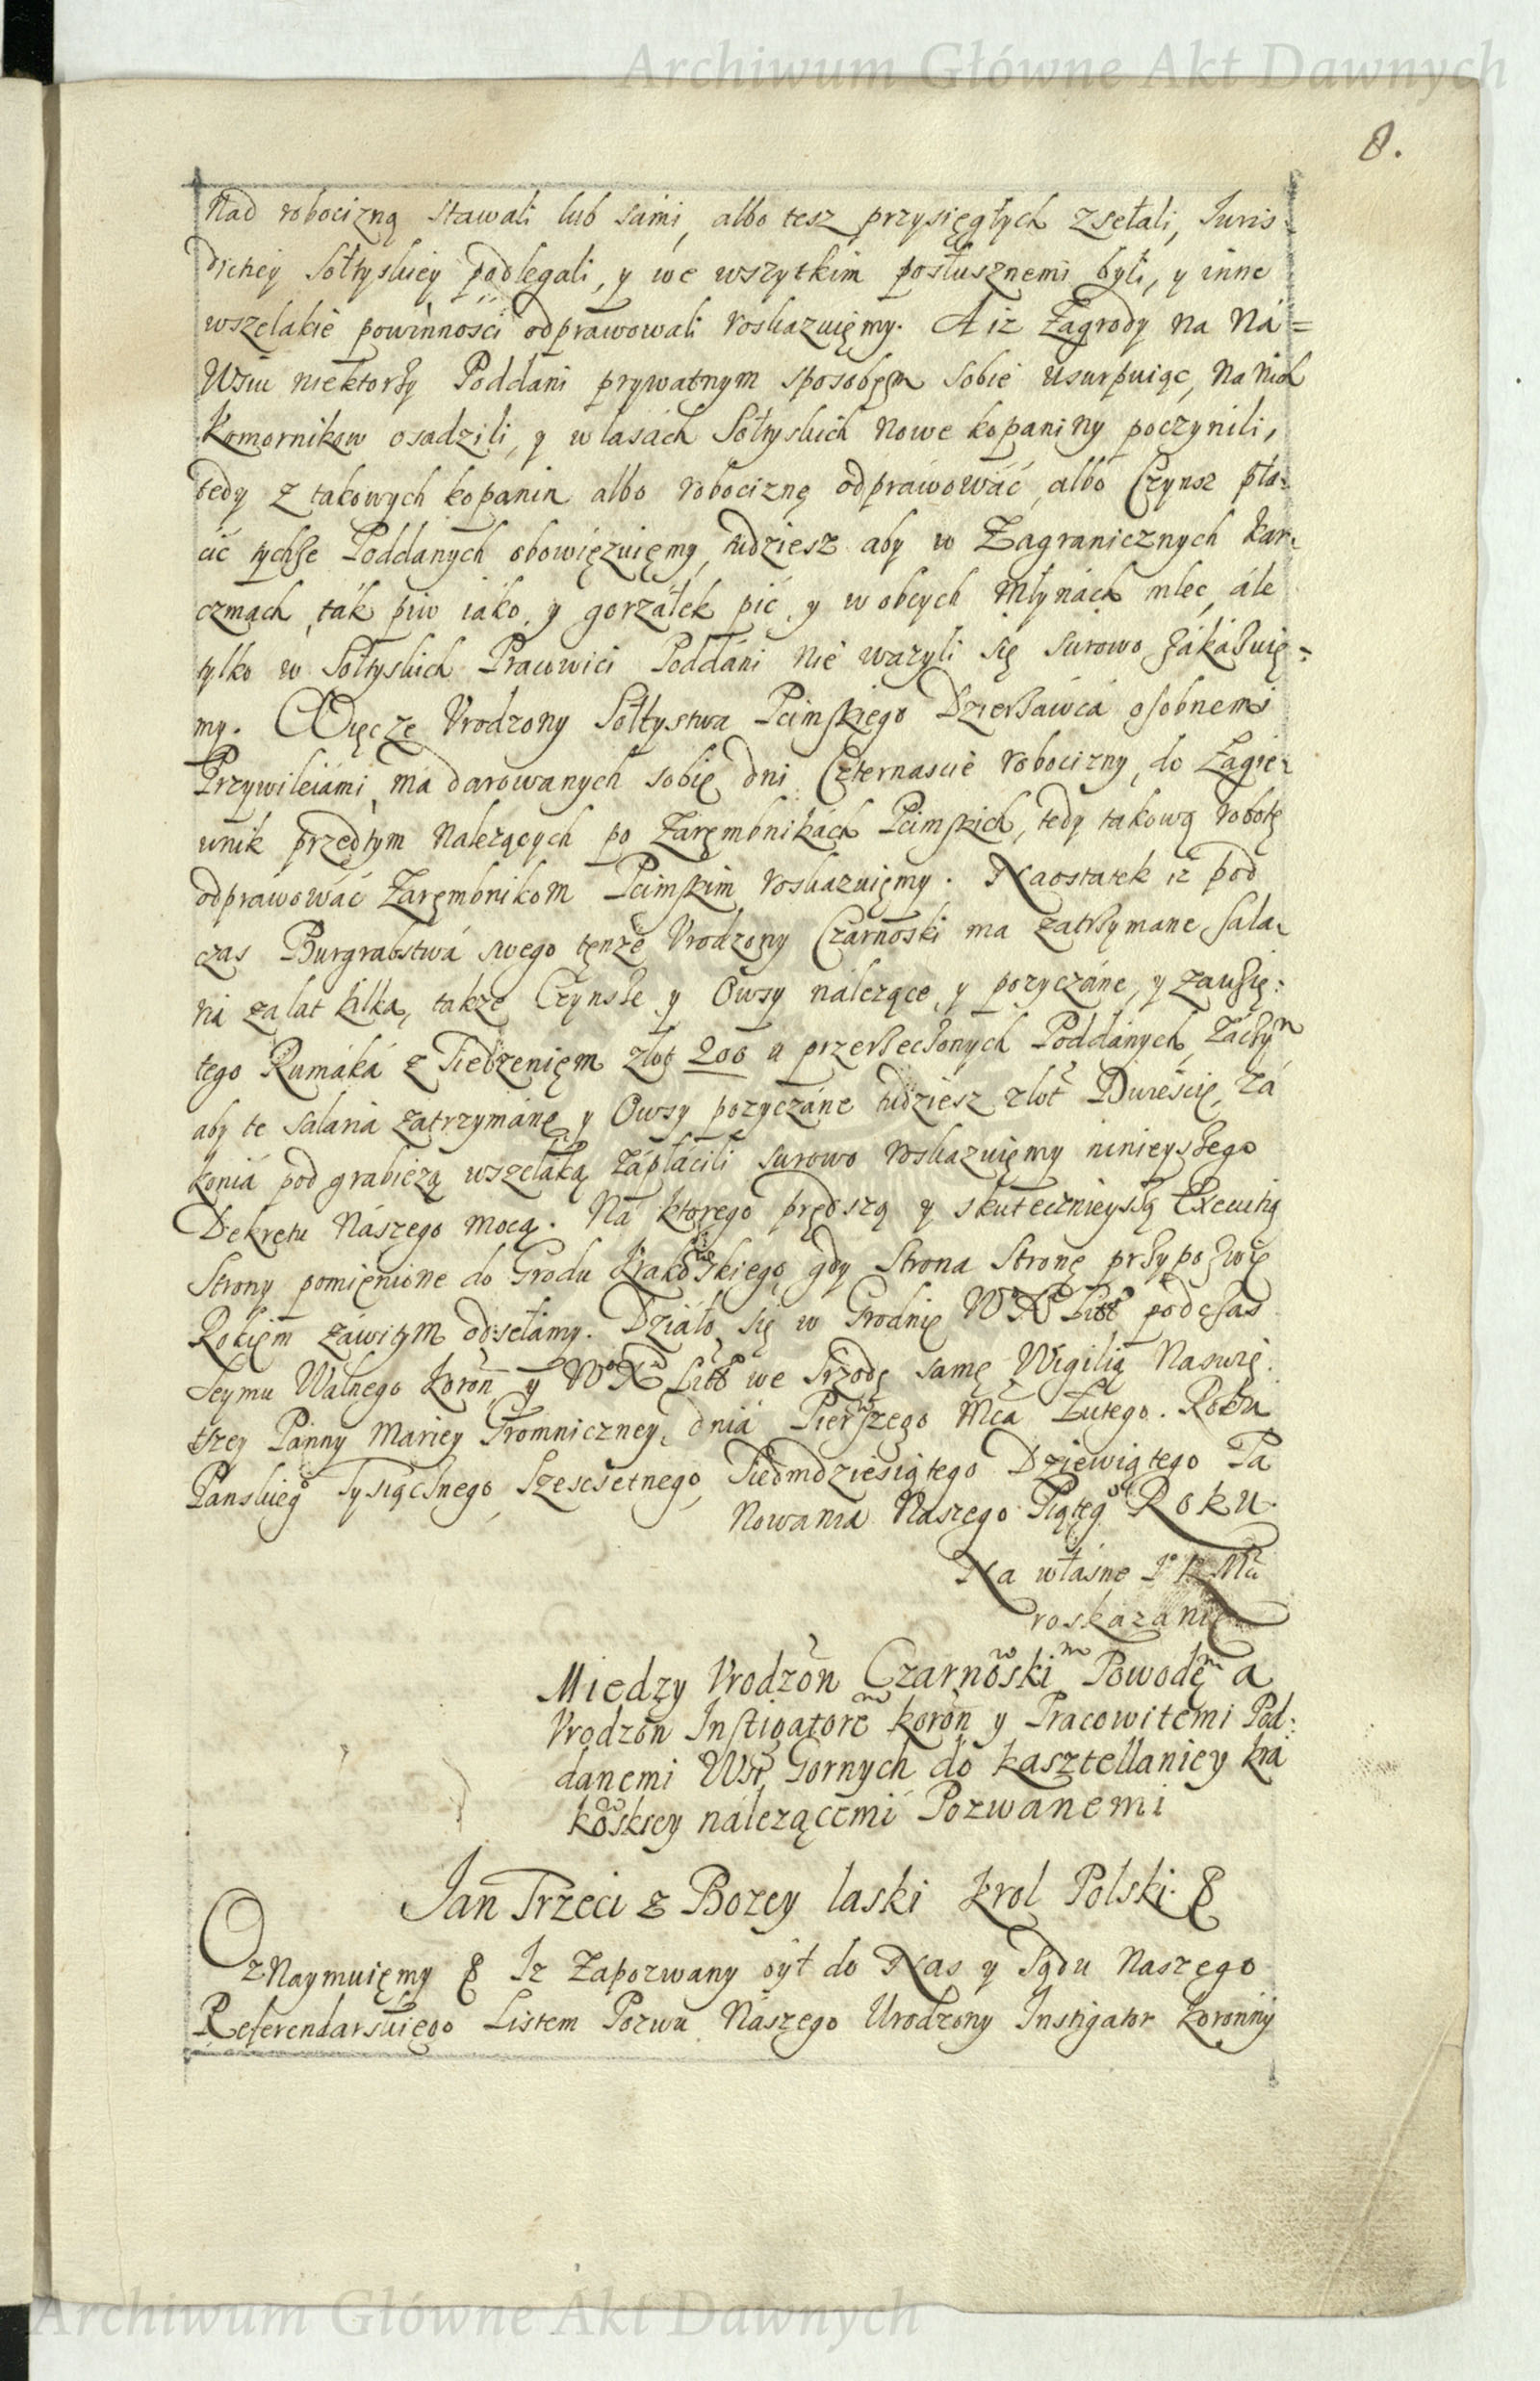 Archiwum Główne Akt Dawnych
8.
Nad robocizną stawali lub sami, albo tesz przysięgłych zsełali, Juris
dictiey Sołtyskiey podlegali, y we wszytkim posłusznemi byli, y inne
wszelakie powinnosci odprawowali roskazuięmy. A iz Zagrody na Ná=
wsiu niektorzy Poddani prywatnym sposobęm sobie usurpuiąc, na nich
Komornikow osadzili, y w lasách Sołtyskich nowe kopaniny poczynili,
tedy z takowych kopanin albo robociznę odpráwowáć, albo Czynsz płá:
cić tychże Poddanych obowięzuięmy, tudziesz aby w Zagranicznych kar:
czmách, ták piw iáko, y gorzáłek pić, y w obcych Młynách mlec, ále
tylko w Sołtyskich Pracowici Poddáni nie wazyli się surowo zákázuię=
my. Więc ze Vrodzony Sołtystwa Pcimskiego Dzierżáwcá osobnemi
Przywileiámi, ma darowanych sobie dni Czternascie robocizny, do Łagie:
wnik przedtym nalezących po Zarębnikách Pcimskich, tedy takową robotę
odpráwowáć Zaręmbnikom Pcimskim roskazuięmy. Naostatek iż pod
czas Burgrabstwá swego tęnże Vrodzony Czarnoski ma zatrzymane sala:
ria za lat kilka, takze Czynsze y Owsy nálezące, y pozyczáne, y zaużię:
tego Rumáká z Siedzenięm złot 200 u przerzeczonych Poddánych, záczym
aby te salaria zatrzymáne y Owsy pozyczáne tudziesz złot Dwiescie, zá
koniá pod grabieżą wszeláką zápłácili surowo roskazuięmy ninieyszego
Dekretu Nászego mocą. Ná ktorego prędszą y skutecznieyszą Executią
Strony pomięnione do Grodu Krakowskiego, gdy Strona Stronę przypozwie
Rokięm záwitym odsełamy. Działo się w Grodnie WoXa Litto podczas
Seymu Walnego Koron y WoXa Litto we Srzodę samę Wigilią Naswię:
tszey Pánny Mariey Gromniczney, dniá Pierwszego Mcá Lutego. Roku
Panskiego Tysiącznego, Szescsetnego, Siedmdziesiątego Dziewiątego Pa
nowania Naszego Piątego Roku.
Na własne Jo K Mci
roskazanie
Miedzy Vrodzon Czarnowskim Powodęm a
Vrodzon Instigatorem koron y Pracowitemi Pod:
danemi Wsi Gornych do kasztellaniey kra
kowskiey nálezącemi Pozwanemi
Jan Trzeci z Bozey laski Krol Polski &
Oznaymuięmy & Iz Zapozwany był do Nas y Sądu Naszego
Referendarskięgo Listem Pozwu Nászego Urodzony Instigator koronny
Archiwum Główne Akt Dawnych